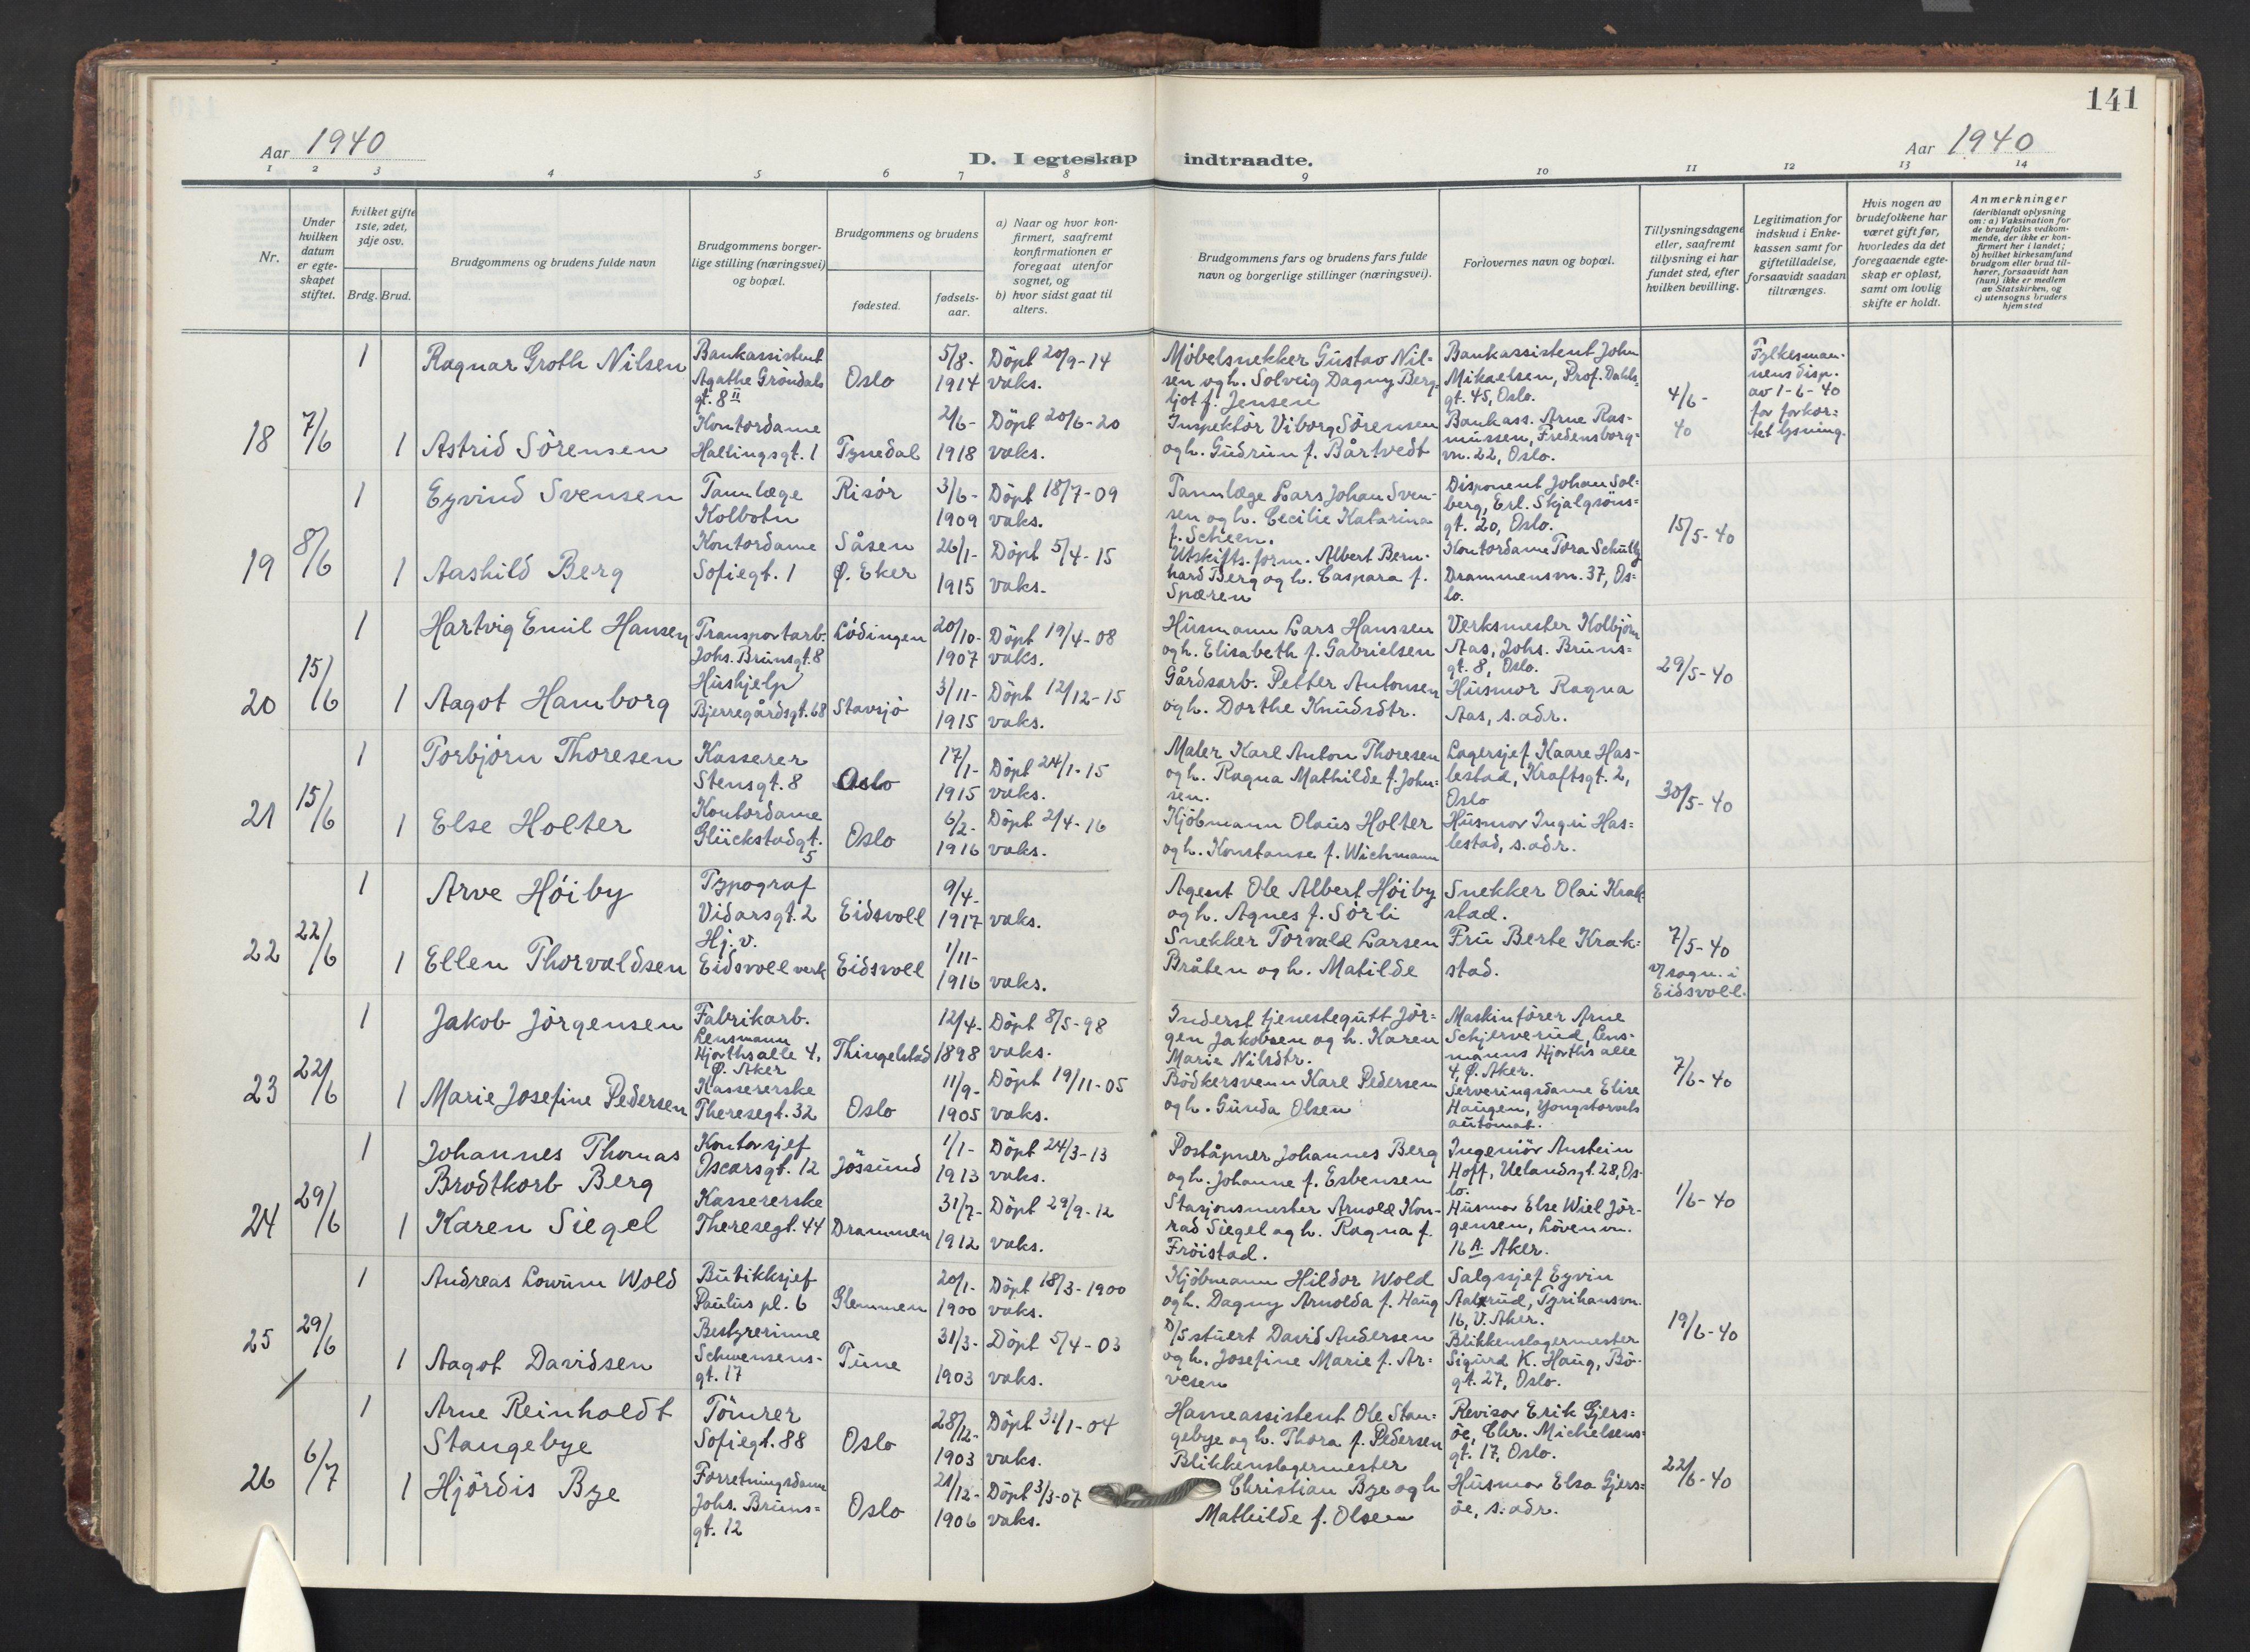 141
Aar 1940
D. I egteskap indtraadte.
Aar 1940
1 2 3 4 5 6 7 8 9 10 11 12 13 14
Nr.
Under
hvilken
datum
er egte-
skapet
stiftet.
hvilket gifte
1ste, 2det,
3dje osv.
Brdg. Brud.
Brudgommens og brudens fulde navn
Brudgommens borger-
lige stilling (næringsvei)
og bopæl.
Brudgommens og brudens
fødested.
fødsels-
aar.
a) Naar og hvor kon-
firmert, saafremt
konfirmationen er
foregaat utenfor
sognet, og
b) hvor sidst gaat til
alters.
Brudgommens fars og brudens fars fulde
navn og borgerlige stillinger (næringsvei).
Forlovernes navn og bopæl.
Tillysningsdagene
eller, saafremt
tillysning ei har
fundet sted, efter
hvilken bevilling.
Legitimation for
indskud i Enke-
kassen samt for
giftetilladelse,
forsaavidt saadan
tiltrænges.
Hvis nogen av
brudefolkene har
været gift før,
hvorledes da det
foregaaende egte-
skap er opløst,
samt om lovlig
skifte er holdt.
Anmerkninger
(deriblandt oplysning
om: a) Vaksination for
de brudefolks vedkom-
mende, der ikke er kon-
firmert her i landet;
b) hvilket kirkesamfund
brudgom eller brud til-
hører, forsaavidt han
(hun) ikke er medlem
av Statskirken, og
c) utensogns bruders
hjemsted
18
7/6
1
Ragnar Groth Nilsen
Bankassistent
Agathe Gröndals
gt. 8 II
Oslo
5/8-
1914
Döpt 20/9-14
vaks.
Möbelsnekker Gustav Nil=
sen og h. Solveig Dagny Berg=
ljot f. Jensen
Bankassistent John
Mikaelsen, Prof. Dahls=
gt. 45, Oslo.
4/6-
40
Fylkesman-
nens disp.
av 1-6-40
for forkor=
tet lysning.
1
Astrid Sörensen
Kontordame
Hallingsgt. 1
Tynedal
2/6-
1918
Döpt 20/6-20
vaks.
Inspektör Viborg Sörensen
og h. Gudrun f. Bårtvedt
Bankass. Arne Ras-
mussen, Fredensborg=
vn. 22, Oslo.
19
8/6
1
Eyvind Svensen
Tannlæge
Kolbotn
Risör
3/6-
1909
Döpt 18/7-09
vaks.
Tannlæge Lars Johan Sven-
sen og h. Cecilie Katarina
f. Scheen.
Disponent Johan Sol-
berg, Erl. Skjalgsöns=
gt. 20, Oslo.
15/5-40
1
Aashild Berg
Kontordame
Sofiegt. 1
Såsen
Ø. Eker
26/1-
1915
Döpt 5/4-15
vaks.
Utskifts.form. Albert Bern-
hard Berg og h. Caspara f.
Spæren
Kontordame Tora Schultz
Drammensvn. 37, Os=
lo.
20
15/6
1
Hartvig Emil Hansen
Transportarb.
Johs. Brunsgt. 8
Lödingen
20/10-
1907
Döpt 19/4-08
vaks.
Husmann Lars Hanssen
og h. Elisabeth f. Gabrielsen
Verksmester Kolbjörn
Aas, Johs. Bruns=
gt. 8, Oslo.
29/5-40
1
Aagot Hamborg
Hushjelp
Bjerregårdsgt. 68
Stavsjö
3/11-
1915
Döpt 12/12-15
vaks.
Gårdsarb. Petter Antonsen
og h. Dorthe Knudsdtr.
Husmor Ragna
Aas, s. adr.
21
15/6
1
Torbjörn Thoresen
Kasserer
Stensgt. 8
Oslo
17/1-
1915
Döpt 24/1-15
vaks.
Maler Karl Anton Thoresen
og h. Ragna Mathilde f. John=
sen.
Lagersjef Kaare Has-
lestad, Kraftsgt. 2,
Oslo
30/5-40
1
Else Holter
Kontordame
Glückstadgt.
5
Oslo
6/2-
1916
Döpt 2/4-16
vaks.
Kjöbmann Olaus Holter
og h. Konstanse f. Wichmann
Husmor Ingri Has=
lestad, s. adr.
22
22/6
1
Arve Höiby
Typograf
Vidarsgt. 2
Eidsvoll
9/4-
1917
vaks.
Agent Ole Albert Höiby
og h. Agnes f. Sörli
Snekker Olai Krak-
stad.
7/5-40
v/ sogn. i
Eidsvoll.
1
Ellen Thorvaldsen
Hj. v.
Eidsvoll verk
Eidsvoll
1/11-
1916
vaks.
Snekker Torvald Larsen
Bråten og h. Matilde
Fru Berte Krak=
stad.
23
22/6
1
Jakob Jörgensen
Fabrikarb.
Lensmann
Hjorthsalle 4,
Ø. Aker
Thingelstad
12/4-
1898
Döpt 8/5-98
vaks.
Inderst tjenestegutt Jör=
gen Jakobsen og h. Karen
Marie Nilsdtr.
Maskinförer Arne
Schjerverud, Lens=
manns Hjorths alle
4, Ø. Aker.
7/6-40
1
Marie Josefine Pedersen
Kassererske
Theresegt. 32
Oslo
11/9-
1905
Döpt 19/11-05
vaks.
Bödkersvenn Karl Pedersen
og h. Gunda Olsen
Serveringsdame Elise
Haugen, Yongstorvets
automat.
24
29/6
1
Johannes Thomas
Brodtkorb Berg
Kontorsjef
Oscarsgt. 12
Jössund
1/1-
1913
Döpt 24/3-13
vaks.
Poståpner Johannes Berg
og h. Johanne f. Esbensen
Ingeniör Anstein
Hoff, Uelandsgt. 28, Os-
lo.
1/6-40
1
Karen Siegel
Kassererske
Theresegt. 44
Drammen
31/7-
1912
Döpt 29/9-12
vaks.
Stasjonsmester Arnold Kon-
rad Siegel og h. Ragna f.
Fröistad.
Husmor Else Wiel Jör-
gensen, Lövenvn.
16 A. Aker.
25
29/6
1
Andreas Lowum Wold
Butikksjef
Paulus pl. 6
Glemmen
20/1-
1900
Döpt 18/3-1900
vaks.
Kjöbmann Hildor Wold
og h. Dagny Arnolda f. Haug
Salgssjef Eyvin
Aalsrud, Tyrihansvn.
16, V. Aker.
19/6-40
1
Aagot Davidsen
Bestyrerinne
Schwensens-
gt. 17
Tune
31/3-
1903
Döpt 5/4-03
vaks.
D/S stuert David Andersen
og h. Josefine Marie f. Ar=
vesen
Blikkenslagermester
Sigurd K. Haug, Bö-
gt. 27, Oslo.
26
6/7
1
Arne Reinholdt
Stangebye
Tömrer
Sofiegt. 88
Oslo
28/12-
1903
Döpt 31/1-04
vaks.
Havneassistent Ole Stan=
gebye og h. Thora f. Pedersen
Revisor Erik Gjers=
öe, Chr. Michelsens=
gt. 17, Oslo.
22/6-40
1
Hjördis Bye
Forretningsdame
Johs. Bruns=
gt. 12
Oslo
21/12-
1906
Döpt 3/3-07
vaks.
Blikkenslagermester
Christian Bye og h
Mathilde f. Olsen
Husmor Elsa Gjers=
öe, s. adr.